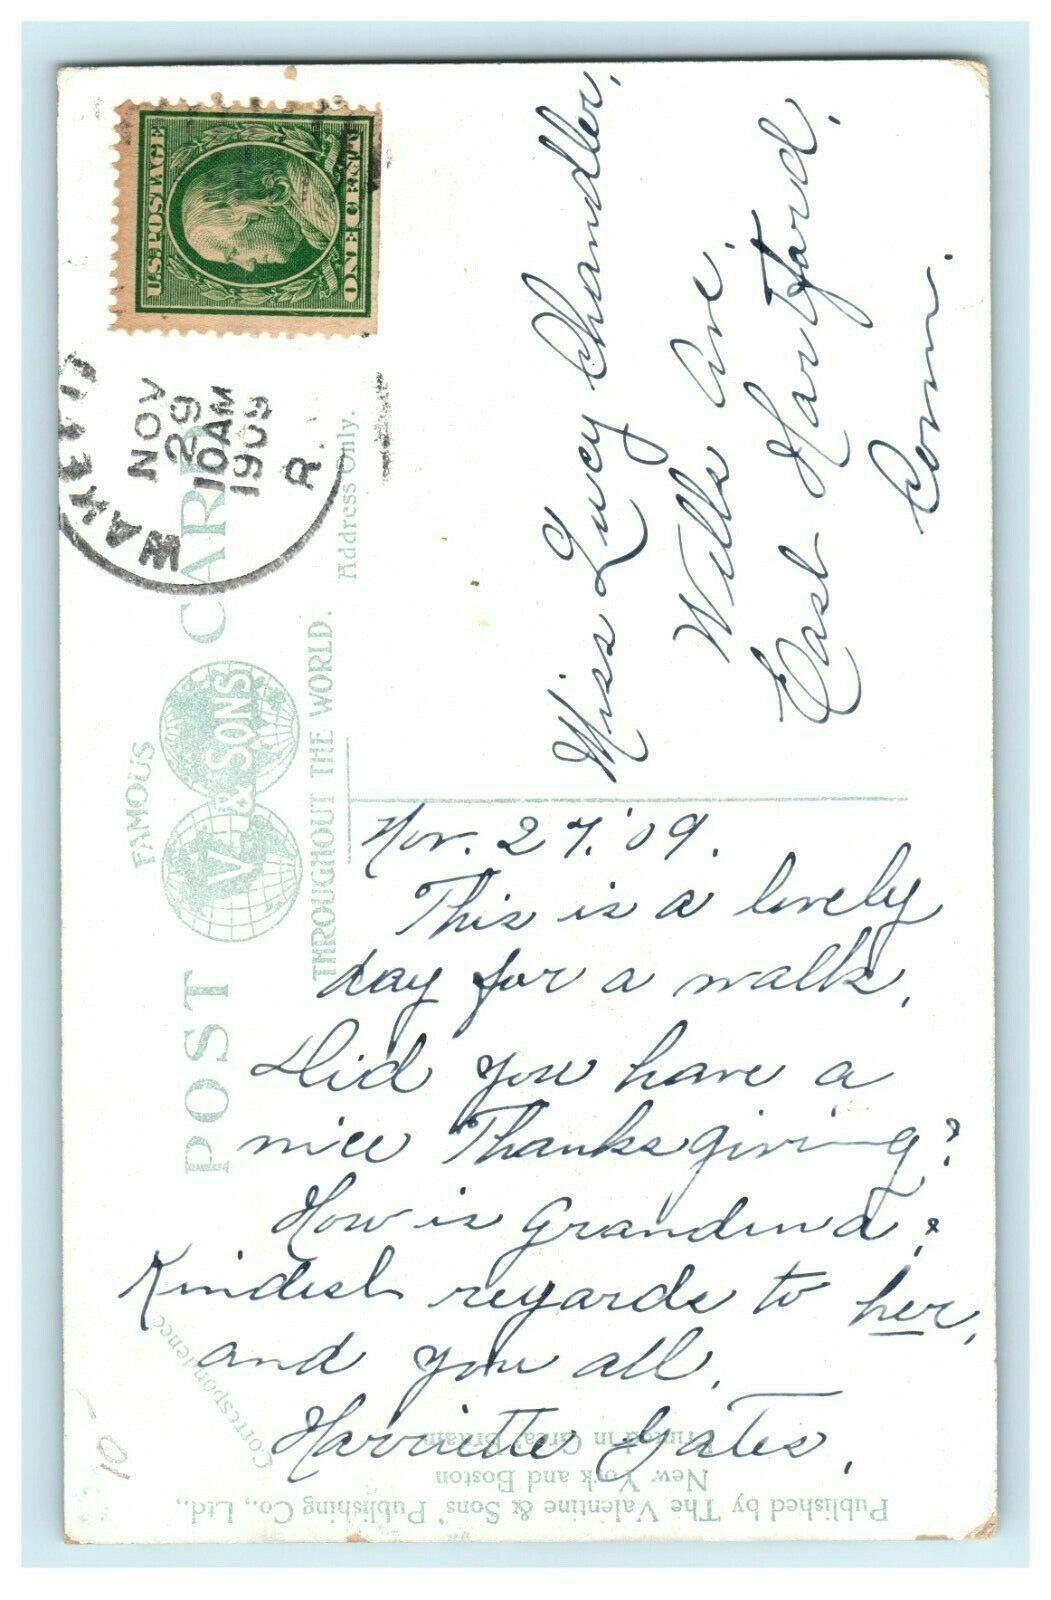 U.S. POSTAGE
ONE CENT
NOV
29
10 AM
1909
R.
FAMOUS
POST CARD
V. & SONS
THROUGHOUT THE WORLD.
Address Only.
Miss Lucy Chandler,
Wells Ave.
East Hartford,
Conn.
Nov. 27. '09.
This is a lovely
day for a walk.
Did you have a
nice Thanksgiving?
How is Grandma?
Kindest regards to her,
and you all.
Harriette Gates.
Correspondence
Published by The Valentine & Sons' Publishing Co., Ltd.,
New York and Boston
Printed in Great Britain
10